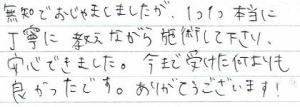 無知でおじゃましましたが、1つ1つ本当に
丁寧に教えながら施術して下さい、
安心できました。今まで受けた何よりも
良かったです。ありがとうございます！